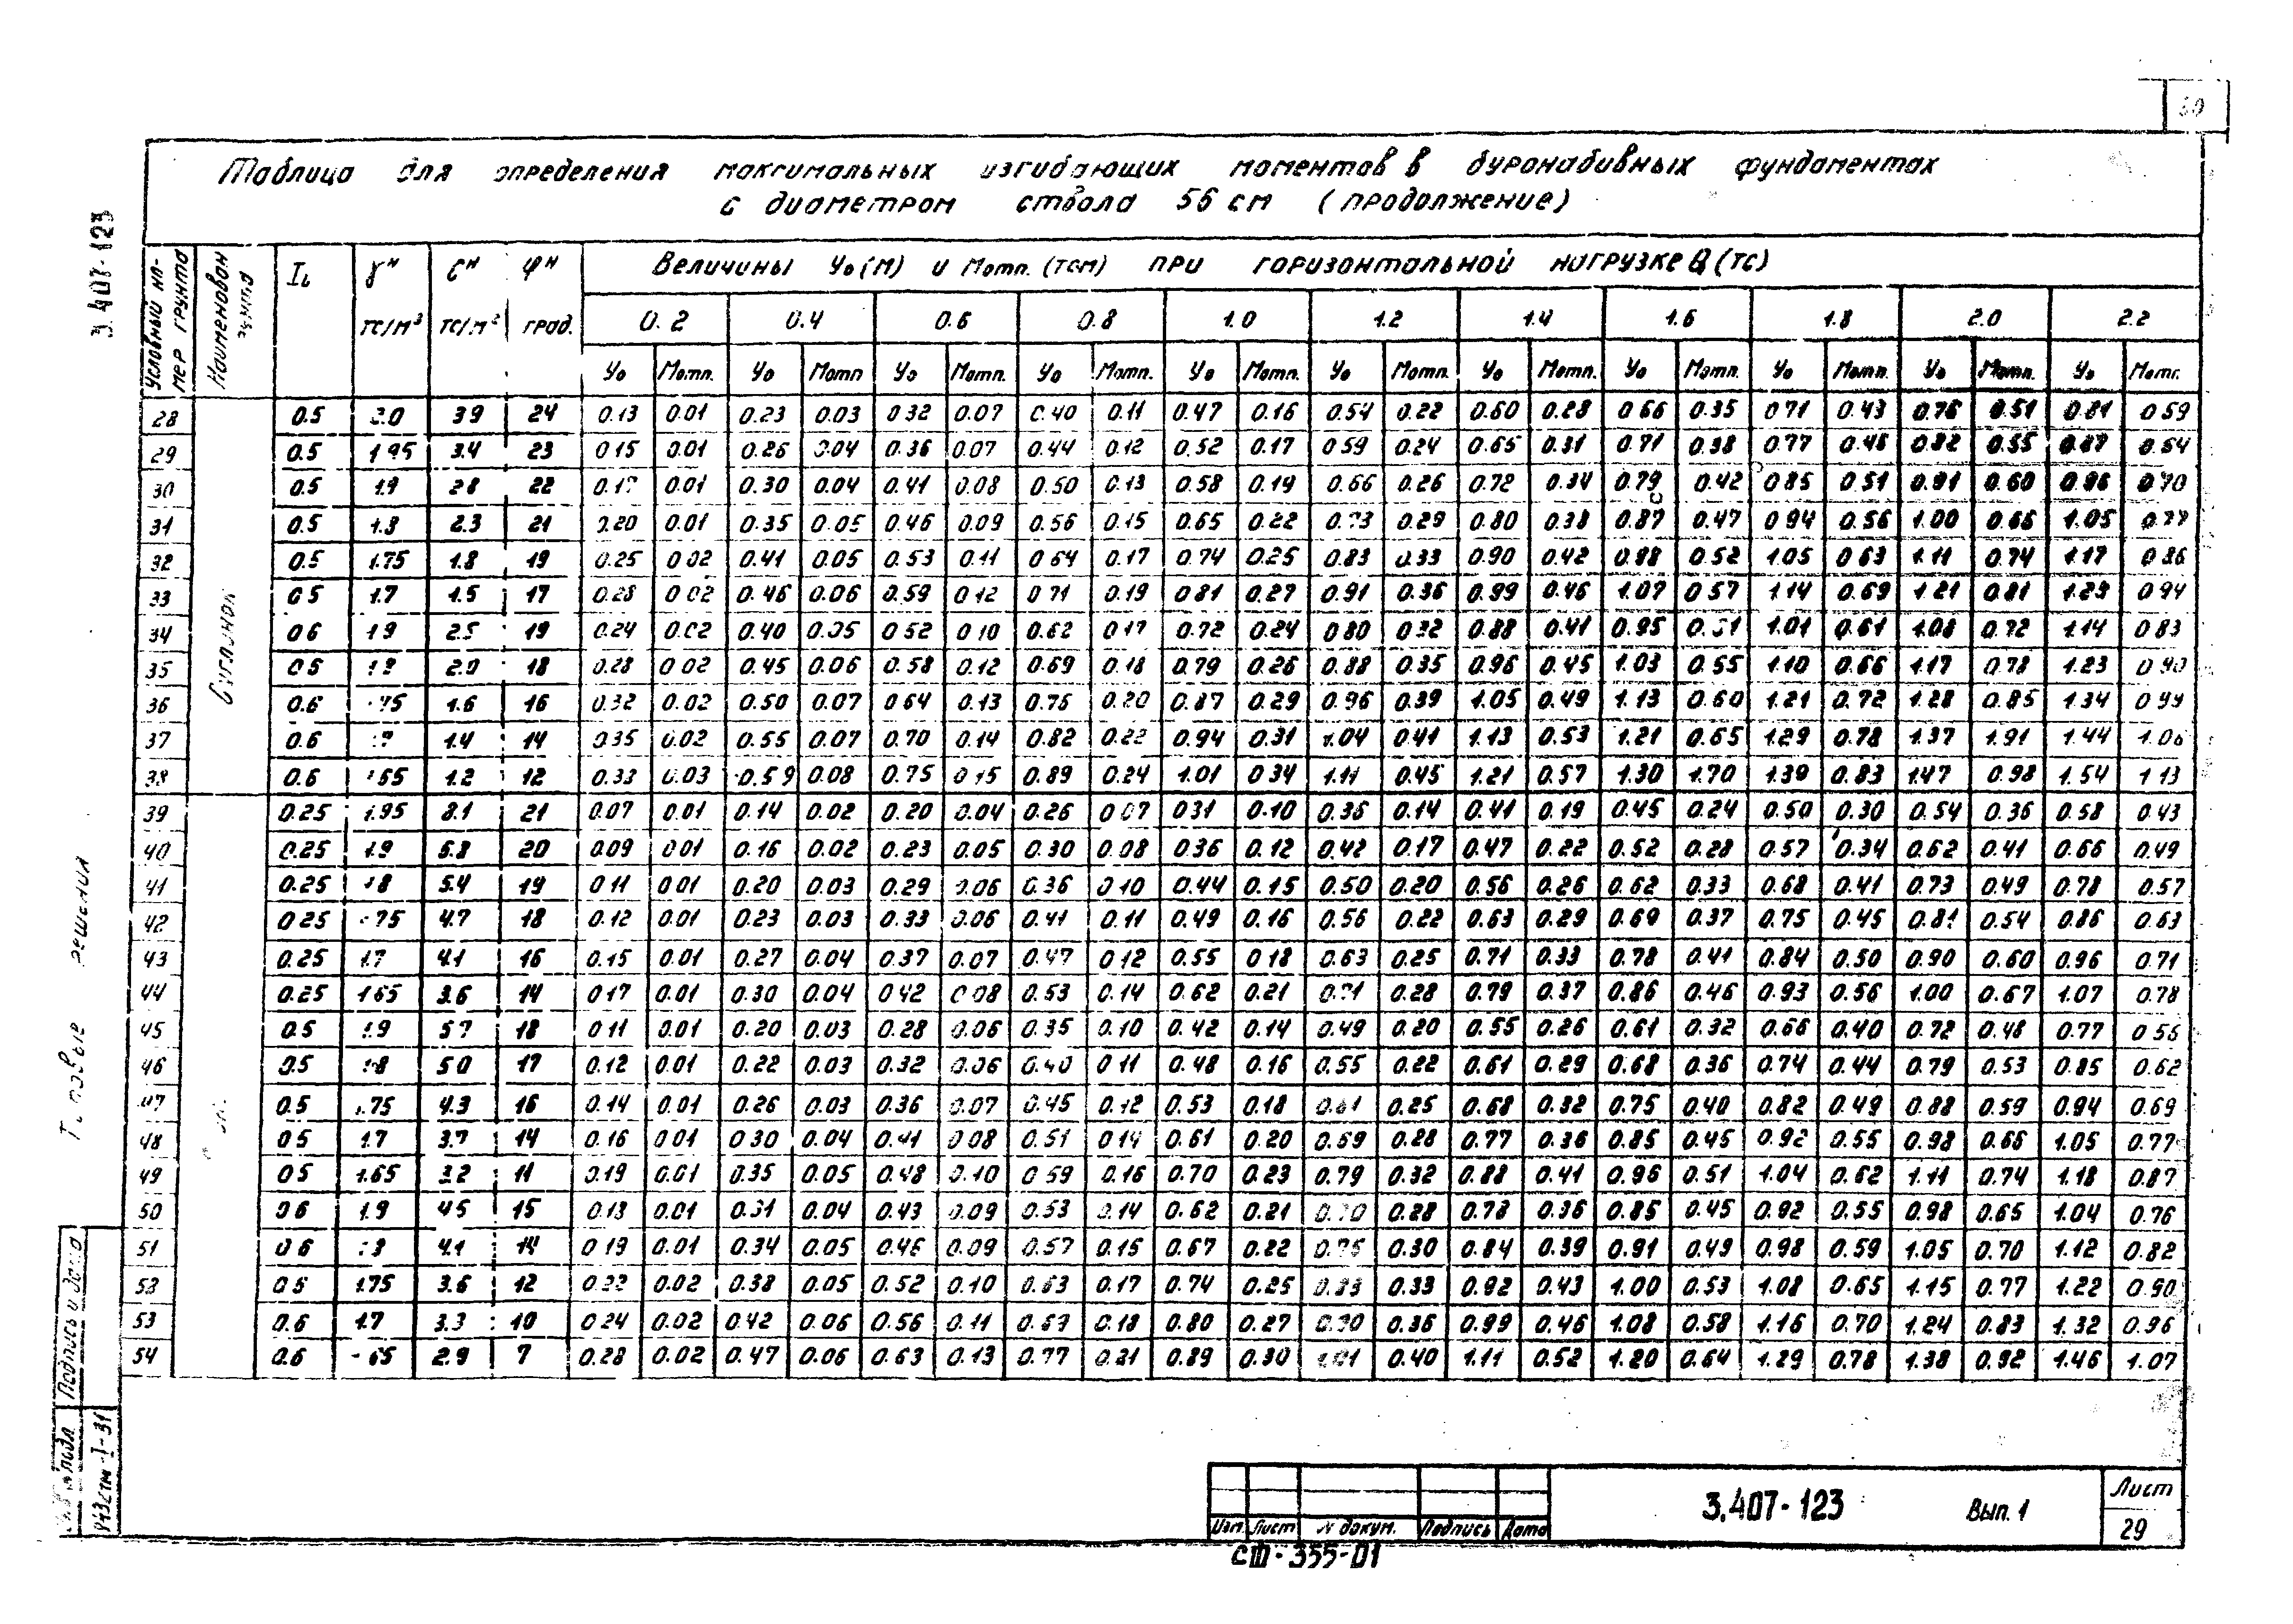 Таблица для определения максимальных изгибающих моментов в буронабивных фундаментах
с диаметром ствола 56 см (продолжение)
3.407-123
Условный номер грунта
Наименован грунта
IL
γн тс/м³
Cн тс/м²
φн град.
Величины У₀(м) и Mотп.(тсм) при горизонтальной нагрузке Q(тс)
0.2 0.4 0.6 0.8 1.0 1.2 1.4 1.6 1.8 2.0 2.2
У₀ Mотп. У₀ Mотп У₀ Mотп. У₀ Mотп. У₀ Mотп. У₀ Mотп. У₀ Mотп. У₀ Mотп. У₀ Mотп. У₀ Mотп. У₀ Mотп.
Суглинок
28 0.5 3.9 24 0.13 0.01 0.23 0.03 0.32 0.07 0.40 0.11 0.47 0.16 0.54 0.22 0.60 0.28 0.66 0.35 0.71 0.43 0.76 0.51 0.81 0.59
29 0.5 1.95 3.4 23 0.15 0.01 0.26 0.04 0.36 0.07 0.44 0.12 0.52 0.17 0.59 0.24 0.65 0.31 0.71 0.38 0.77 0.46 0.82 0.55 0.87 0.64
30 0.5 1.9 2.8 22 0.17 0.01 0.30 0.04 0.41 0.08 0.50 0.13 0.58 0.19 0.66 0.26 0.72 0.34 0.79 0.42 0.85 0.51 0.91 0.60 0.96 0.70
31 0.5 1.8 2.3 21 0.20 0.01 0.35 0.05 0.46 0.09 0.56 0.15 0.65 0.22 0.73 0.29 0.80 0.38 0.87 0.47 0.94 0.56 1.00 0.66 1.05
32 0.5 1.75 1.8 19 0.25 0.02 0.41 0.05 0.53 0.11 0.64 0.17 0.74 0.25 0.83 0.33 0.90 0.42 0.98 0.52 1.05 0.63 1.11 0.74 1.17 0.86
33 0.5 1.7 1.5 17 0.28 0.02 0.46 0.06 0.59 0.12 0.71 0.19 0.81 0.27 0.91 0.36 0.99 0.46 1.07 0.57 1.14 0.69 1.21 0.81 1.29 0.94
34 0.6 1.9 2.5 19 0.24 0.02 0.40 0.05 0.52 0.10 0.62 0.17 0.72 0.24 0.80 0.32 0.88 0.41 0.95 1.01 0.61 1.08 0.72 1.14 0.83
35 0.6 2.0 18 0.28 0.02 0.45 0.06 0.58 0.12 0.69 0.18 0.79 0.26 0.88 0.35 0.96 0.45 1.03 0.55 1.10 0.66 1.17 0.78 1.23 0.90
36 0.6 1.75 1.6 16 0.32 0.02 0.50 0.07 0.64 0.13 0.76 0.20 0.87 0.29 0.96 0.39 1.05 0.49 1.13 0.60 1.21 0.72 1.28 0.85 1.34 0.99
37 0.6 1.7 1.4 14 0.35 0.02 0.55 0.07 0.70 0.14 0.82 0.22 0.94 0.31 1.04 0.41 1.13 0.53 1.21 0.65 1.29 0.78 1.37 1.91 1.44 1.06
38 0.6 1.65 1.2 12 0.33 0.03 0.59 0.08 0.75 0.15 0.89 0.24 1.01 0.34 1.11 0.45 1.21 0.57 1.30 1.70 1.39 0.83 1.47 0.98 1.54 1.13
39 0.25 1.95 8.1 21 0.07 0.01 0.14 0.02 0.20 0.04 0.26 0.07 0.31 0.10 0.36 0.14 0.41 0.19 0.45 0.24 0.50 0.30 0.54 0.36 0.58 0.43
40 0.25 1.9 6.8 20 0.09 0.01 0.16 0.02 0.23 0.05 0.30 0.08 0.36 0.12 0.42 0.17 0.47 0.22 0.52 0.28 0.57 0.34 0.62 0.41 0.66 0.49
41 0.25 1.8 5.4 19 0.11 0.01 0.20 0.03 0.29 0.06 0.36 0.10 0.44 0.15 0.50 0.20 0.56 0.26 0.62 0.33 0.68 0.41 0.73 0.49 0.78 0.57
42 0.25 1.75 4.7 18 0.12 0.01 0.23 0.03 0.33 0.06 0.41 0.11 0.49 0.16 0.56 0.22 0.63 0.29 0.69 0.37 0.75 0.45 0.81 0.54 0.86 0.63
43 0.25 1.7 4.1 16 0.15 0.01 0.27 0.04 0.37 0.07 0.47 0.12 0.55 0.18 0.63 0.25 0.71 0.33 0.78 0.41 0.84 0.50 0.90 0.60 0.96 0.71
44 0.25 1.65 3.6 14 0.17 0.01 0.30 0.04 0.42 0.08 0.53 0.14 0.62 0.21 0.71 0.28 0.79 0.37 0.86 0.46 0.93 0.56 1.00 0.67 1.07 0.78
45 0.5 1.9 5.7 18 0.11 0.01 0.20 0.03 0.28 0.06 0.35 0.10 0.42 0.14 0.49 0.20 0.55 0.26 0.61 0.32 0.66 0.40 0.72 0.48 0.77 0.56
46 0.5 1.8 5.0 17 0.12 0.01 0.22 0.03 0.32 0.06 0.40 0.11 0.48 0.16 0.55 0.22 0.61 0.29 0.68 0.36 0.74 0.44 0.79 0.53 0.85 0.62
47 0.5 1.75 4.3 16 0.14 0.01 0.26 0.03 0.36 0.07 0.45 0.12 0.53 0.18 0.61 0.25 0.68 0.32 0.75 0.40 0.82 0.49 0.88 0.59 0.94 0.69
48 0.5 1.7 3.7 14 0.16 0.01 0.30 0.04 0.41 0.08 0.51 0.14 0.61 0.20 0.69 0.28 0.77 0.36 0.85 0.45 0.92 0.55 0.98 0.66 1.05 0.77
49 0.5 1.65 3.2 11 0.19 0.01 0.35 0.05 0.48 0.10 0.59 0.16 0.70 0.23 0.79 0.32 0.88 0.41 0.96 0.51 1.04 0.62 1.11 0.74 1.18 0.87
50 0.6 1.9 4.5 15 0.13 0.01 0.31 0.04 0.43 0.09 0.53 0.14 0.62 0.21 0.70 0.28 0.78 0.36 0.85 0.45 0.92 0.55 0.98 0.65 1.04 0.76
51 0.6 1.8 4.1 14 0.19 0.01 0.34 0.05 0.46 0.09 0.57 0.15 0.67 0.22 0.76 0.30 0.84 0.39 0.91 0.49 0.98 0.59 1.05 0.70 1.12 0.82
53 0.6 1.75 3.6 12 0.22 0.02 0.38 0.05 0.52 0.10 0.63 0.17 0.74 0.25 0.83 0.33 0.92 0.43 1.00 0.53 1.08 0.65 1.15 0.77 1.22 0.90
53 0.6 1.7 3.3 10 0.24 0.02 0.42 0.06 0.56 0.11 0.69 0.18 0.80 0.27 0.90 0.36 0.99 0.46 1.08 0.58 1.16 0.70 1.24 0.83 1.32 0.96
54 0.6 1.65 2.9 7 0.28 0.02 0.47 0.06 0.63 0.13 0.77 0.21 0.89 0.30 1.01 0.40 1.11 0.52 1.20 0.64 1.29 0.78 1.38 0.92 1.46 1.07
решения
Подпись и дата
подл
943стм-I-31
Изм. Лист N докум. Подпись Дата
3.407-123 Вып. 1
Лист
29
СФ-355-01